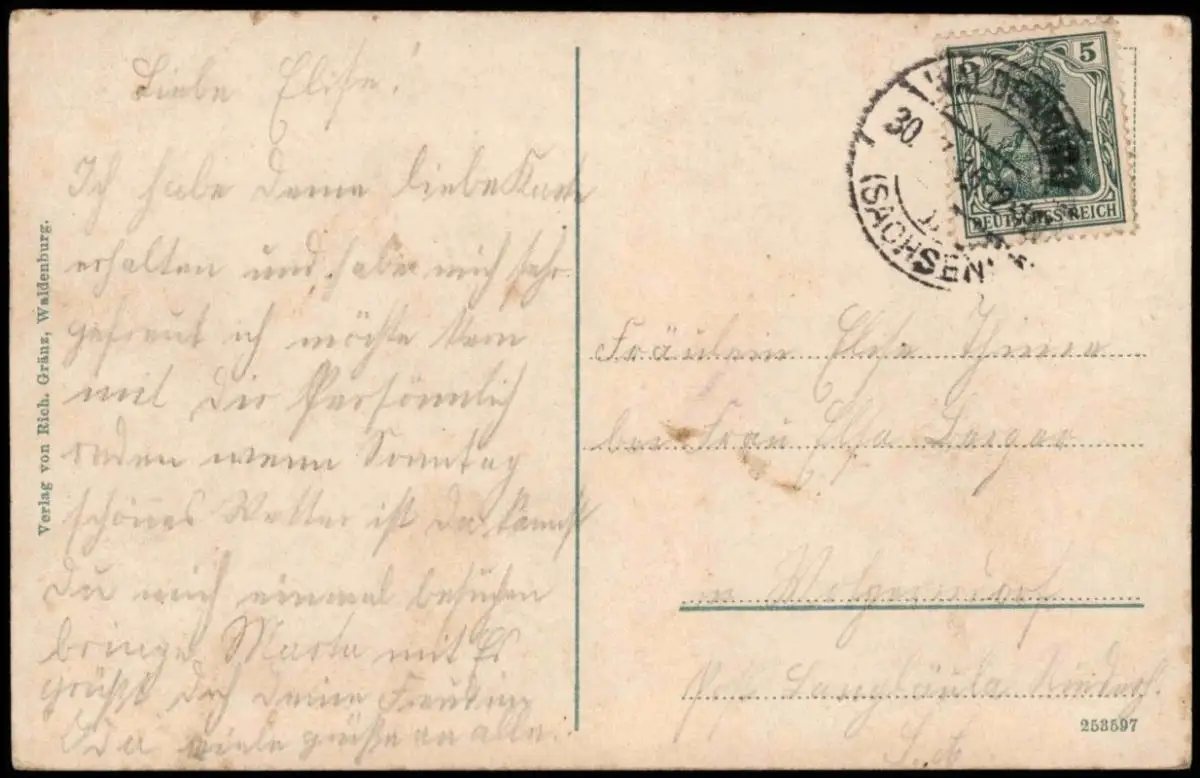 Liebe Elise!
Ich habe deine liebe Karte
erhalten und habe mich sehr
gefreut ich möchte kern
mit Dir Persönlich
reden wenn Sonntag
schönes Wetter ist da kannst
Du mich einmal besuchen
bringe Marta mit Es
grüßt Dich deine Freundin
viele grüße an alle.
Verlag von Rich. Gränz, Waldenburg.
5 5
DEUTSCHES REICH
WALDENBURG
30.
(SACHSEN)
Fräulein Elise
bei Frau Elsa
in
Langläuba Niederh.
S. A
253597